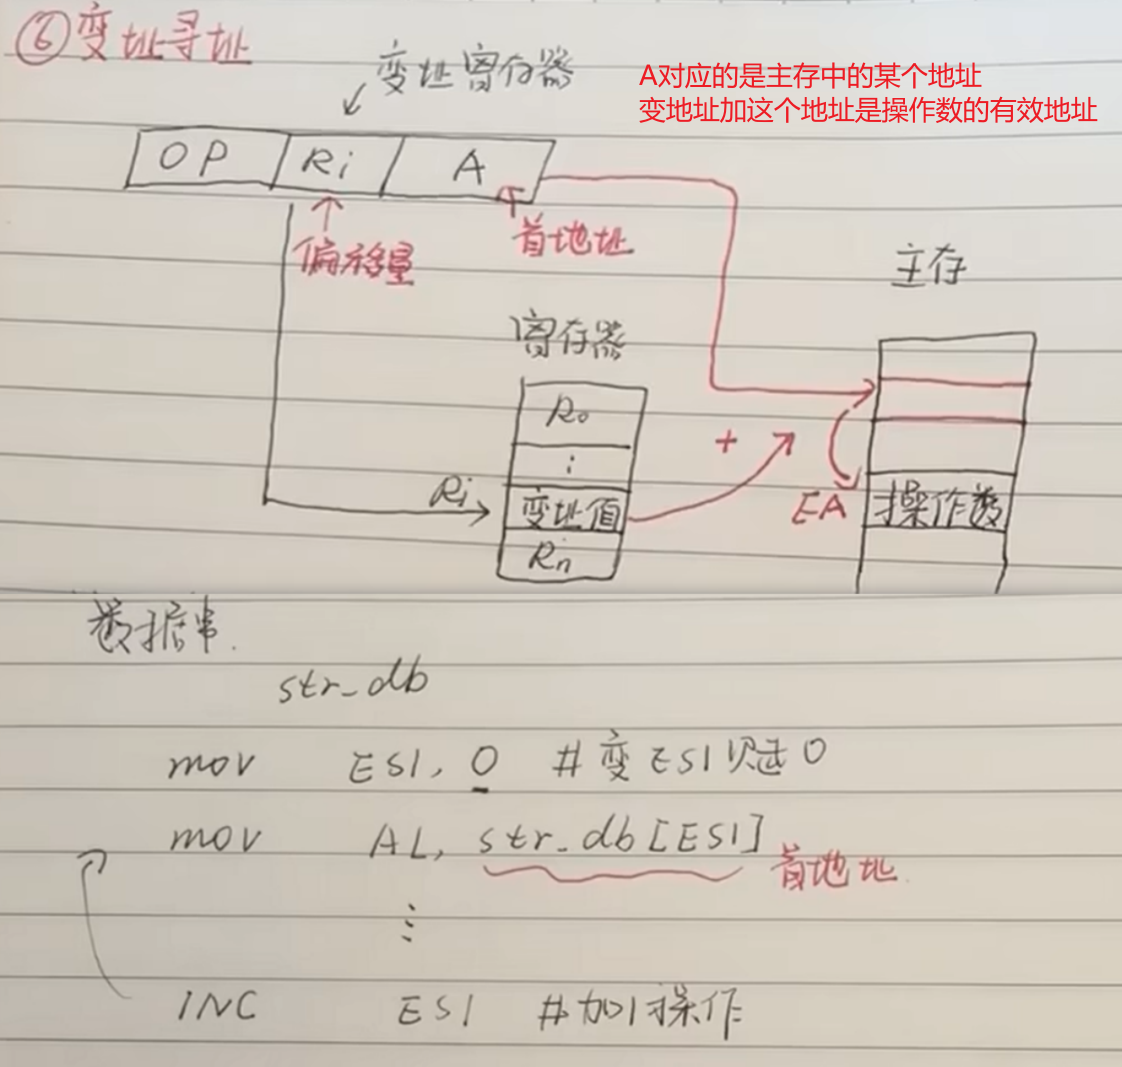 ⑥变址寻址
变址寄存器
A对应的是主存中的某个地址
变地址加这个地址是操作数的有效地址
OP Ri A
偏移量
首地址
主存
寄存器
R0
⋮
+
Ri
变址值
EA
操作数
Rn
数据串.
str_db
mov ESI, 0 #变ESI赋0
mov AL, str_db[ESI]
首地址
⋮
INC ESI #加1操作